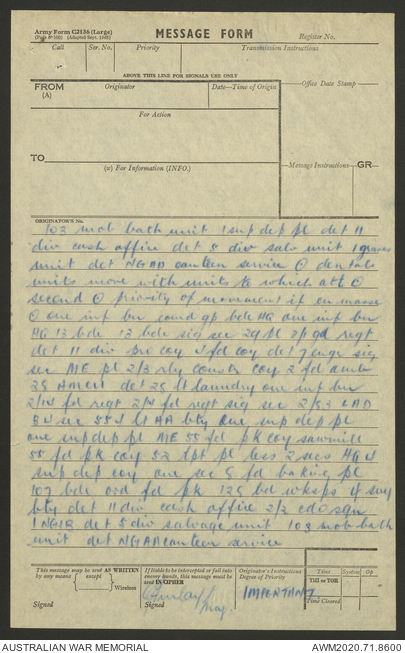 Army Form C2136 (Large)
MESSAGE FORM
Register No.
Call
Ser. No.
Priority
Transmission Instructions
ABOVE THIS LINE FOR SIGNALS USE ONLY
FROM
(A)
Originator
Date—Time of Origin
Office Date Stamp
For Action
TO
(w) For Information (INFO.)
Message Instructions
GR
ORIGINATOR'S No.
103 mob bath unit 1 sup dep pl det 11
div cash office det 5 div salv unit 1 graves
unit det canteen service O dentals
units move with units to which att O
second O priority of movement if en masse
O one inf bn comd gp bde HQ one inf bn
HQ 13 bde 13 bde sig sec regt
det 11 div coy fd coy det 7 engr sig
sec ME pl 2/3 rly constr coy 2 fd amb
25 det 25 lt laundry one inf bn
2/14 fd regt 2/14 fd regt sig sec 2/53 LAD
sec lt AA bty one sup dep pl
one sup dep pl ME 55 fd pk coy sawmill
55 fd pk coy pl less 2 secs HQ 4
sup dep coy one sec 5 fd baking pl
107 bde ord fd pk 125 bd wksps svy
bty det 11 div cash office 2/3 cdo sqn
det 5 div salvage unit 103 mob bath
unit det canteen service
This message may be sent AS WRITTEN
by any means
except
Wireless
Signed
If liable to be intercepted or fall into
enemy hands, this message must be
sent IN CIPHER
Signed
Maj.
Originator's Instructions
Degree of Priority
IMPORTANT
Time
System
Op
THI or TOR
Time Cleared
AUSTRALIAN WAR MEMORIAL
AWM2020.71.8600